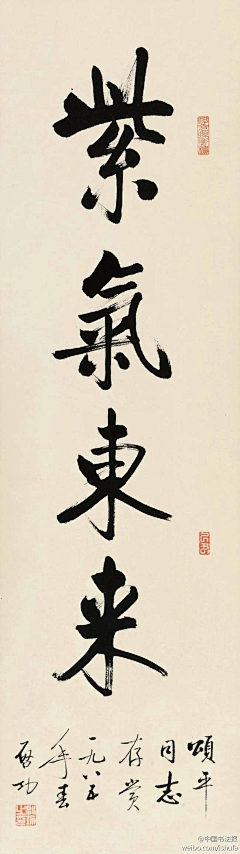 紫氣東来
頌平
同志
存赏
一九八五
年春
启功
@中国书法报
weibo.com/ishufa